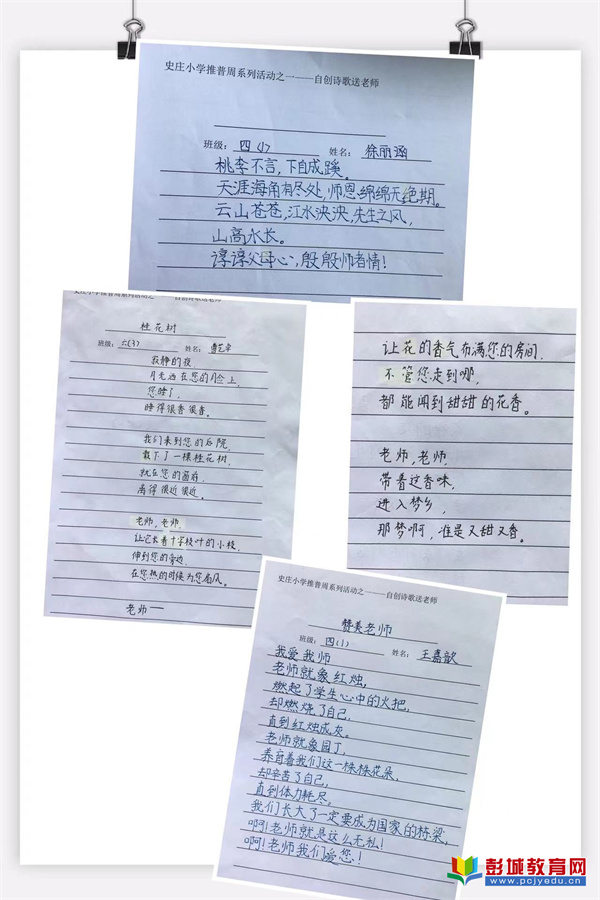 史庄小学推普周系列活动之一——自创诗歌送老师
班级: 四(1) 姓名: 徐丽涵
桃李不言，下自成蹊。
天涯海角有尽处，师恩绵绵无绝期。
云山苍苍，江水泱泱，先生之风，
山高水长。
谆谆父母心，殷殷师者情！
史庄小学推普周系列活动之一——自创诗歌送老师
桂花树
班级: 六(3) 姓名:
寂静的夜
月光洒在您的脸上，
您睡了，
睡得很香很香。
我们来到您的后院，
栽下了一棵桂花树，
就在您的窗前，
离得很近很近。
老师，老师，
让它长着十字枝叶的小枝，
伸到您的旁边，
在您热的时候为您扇风。
老师——
让花的香气布满您的房间，
不管您走到哪，
都能闻到甜甜的花香。
老师，老师，
带着这香味，
进入梦乡，
那梦啊，准是又甜又香。
史庄小学推普周系列活动之一——自创诗歌送老师
赞美老师
班级: 四(1) 姓名: 王嘉歆
我爱我师
老师就象红烛，
燃起了学生心中的火把，
却燃烧了自己，
直到红烛成灰。
老师就象园丁，
养育着我们这一株株花朵，
却辛苦了自己，
直到体力耗尽，
我们长大了一定要成为国家的栋梁，
啊！老师就是这么无私！
啊！老师我们爱您！
彭城教育网
www.pcjyedu.cn